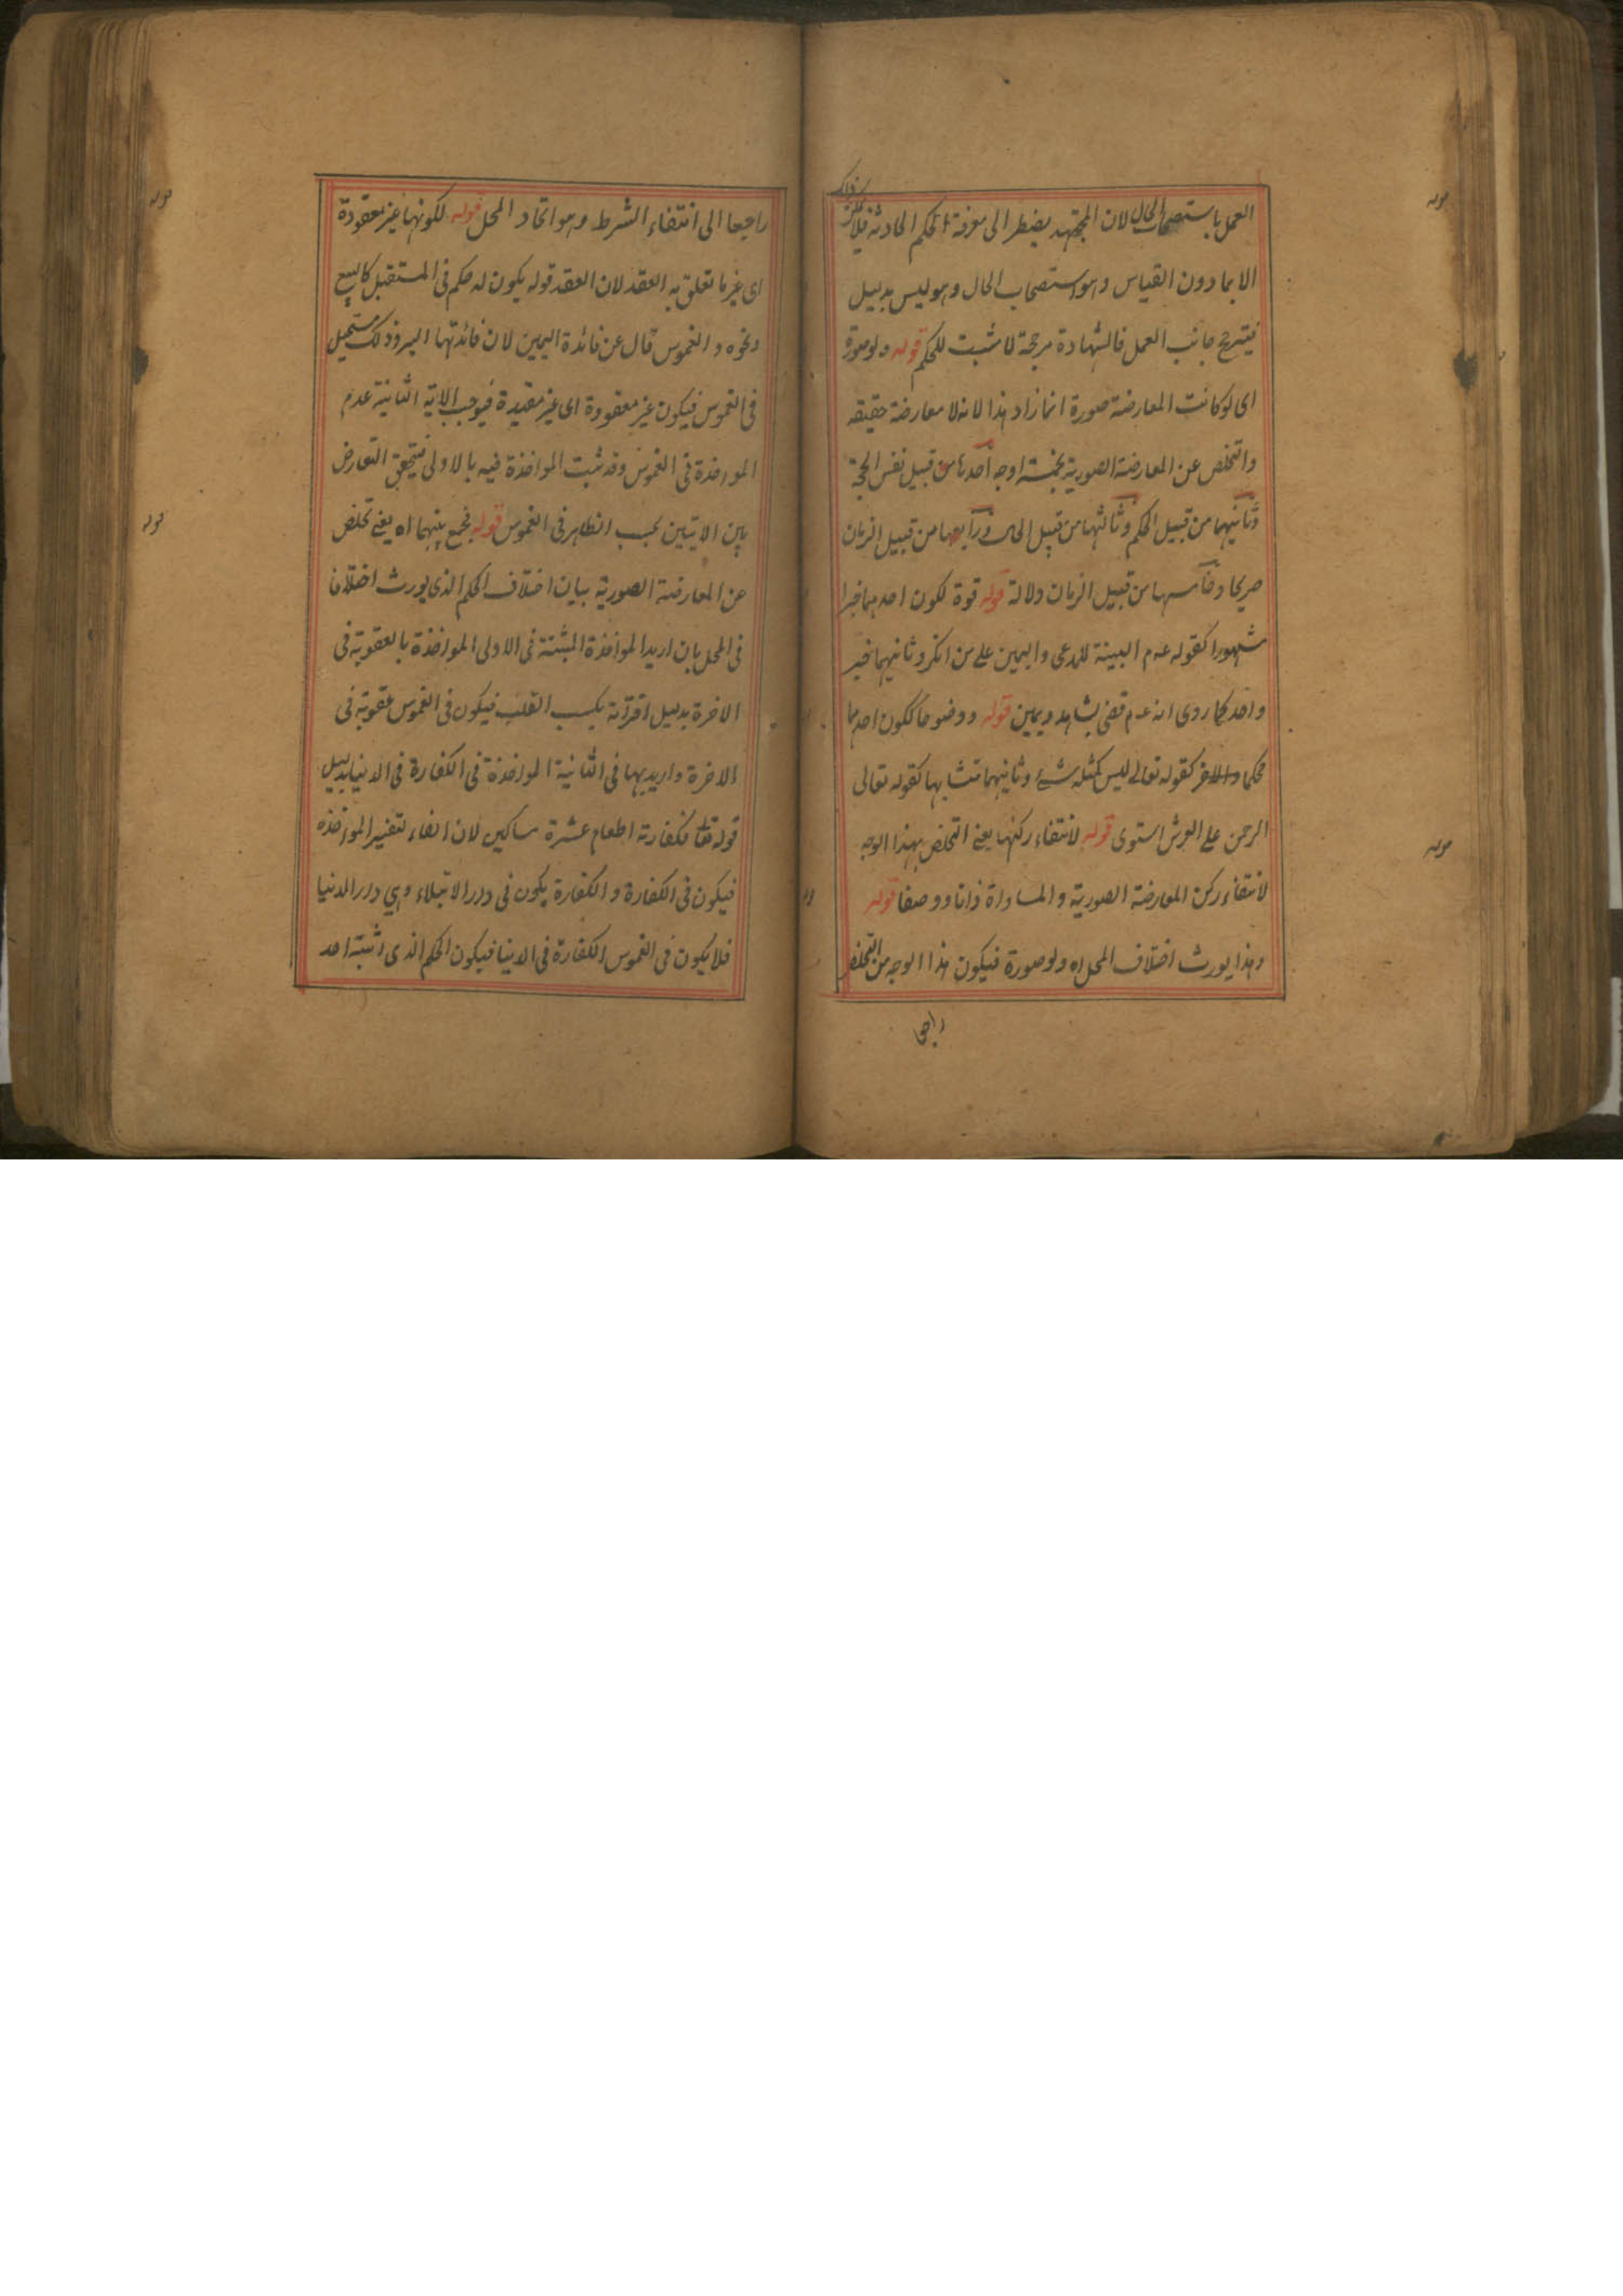 العمل باستصحاب الحال لان المجتهد يضطر الى معرفة الحكم الحادثة فلا يمكن ذلك
الا بما دون القياس وهو استصحاب الحال وهو ليس بدليل
فيترجح جانب العمل فالشهادة مرجحة لا مثبت للحكم قوله ولو صورة
اى لو كانت المعارضة صورة انما زاد هذا لانه لا معارضة حقيقه
والتخلص عن المعارضة الصورية بخمسة اوجه احدها من قبيل نفس الحجة
وثانيهما من قبيل الحكم وثالثها من قبيل الحال ورابعها من قبيل الزمان
صريحا وخامسها من قبيل الزمان دلالة قوله قوة لكون احدهما خبرا
مشهورا كقوله عم البينة للمدعى واليمين على من انكر وثانيهما خبر
واحد كما روى انه عم قضى بشاهد ويمين قوله ووضوحا ككون احدهما
محكما والاخر كقوله تعالى ليس كمثله شئ وثانيهما متشابها كقوله تعالى
الرحمن على العرش استوى قوله لانتفاء ركنها يعنى التخلص بهذا الوجه
لانتفاء ركن المعارضة الصورية والمساواة ذاتا ووصفا قوله
وهذا يورث اختلاف المحل اه ولو صورة فيكون هذا الوجه من التخلص
راجعا
راجعا الى انتفاء الشرط وهو اتحاد المحل قوله لكونها غير معقودة
اى غير ما تعلق به العقد لان العقد قوله يكون له حكم فى المستقبل كالبيع
ونحوه والغموس قال عن فائدة اليمين لان فائدتها البر وذلك مستحيل
فى الغموس فيكون غير معقودة اى غير مقيدة فيوجب الاية الثانية عدم
المواخذة فى الغموس وقد ثبت المواخذة فيه بالاولى فيتحقق التعارض
بين الايتين بحسب الظاهر فى الغموس قوله فجمع بينهما اه يعنى تخلص
عن المعارضة الصورية ببيان اختلاف الحكم الذى يورث اختلافا
فى المحل بان اريد المواخذة المثبتة فى الاولى المواخذة بالعقوبة فى
الاخرة بدليل اقترانه بكسب القلب فيكون فى الغموس عقوبة فى
الاخرة واريد بها فى الثانية المواخذة فى الكفارة فى الدنيا بدليل
قوله تعالى فكفارته اطعام عشرة مساكين لان الفاء لتفسير المواخذه
فيكون فى الكفارة والكفارة يكون فى دار الابتلاء وهي دار الدنيا
فلا يكون فى الغموس الكفارة فى الدنيا فيكون الحكم الذى اثبته احد